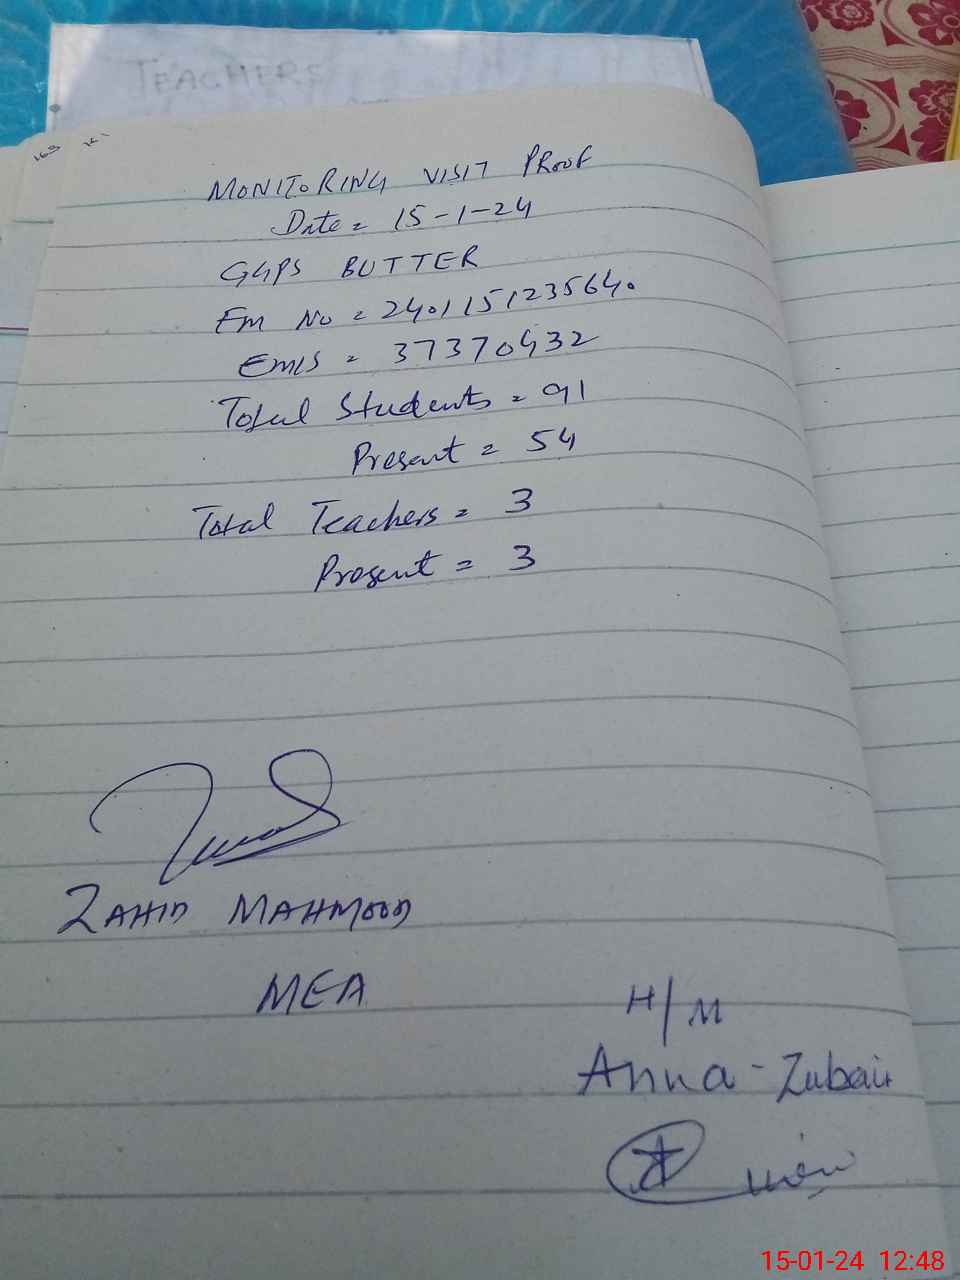 TEACHERS
163
MONITORING VISIT PROOF
Date = 15-1-24
GGPS BUTTER
Fm No = 240115123564.
EMIS = 37370432
Total Students = 91
Present = 54
Total Teachers = 3
Present = 3
ZAHID MAHMOOD
MEA
H/M
Anna-Zubair
15-01-24 12:48